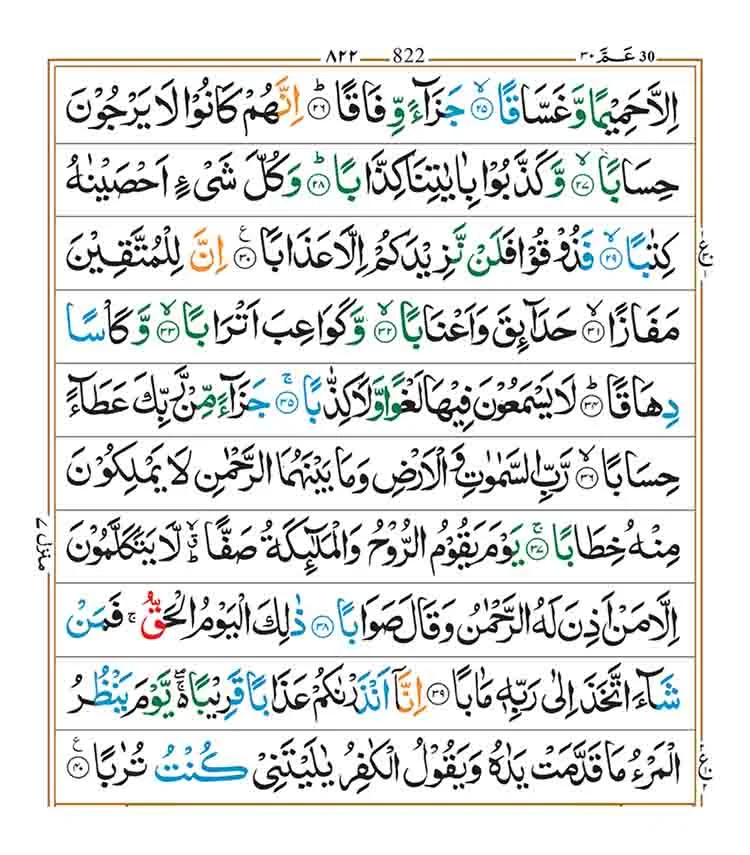 30 عَمَّ ۳۰ 822 ۸۲۲
اِلَّا حَمِيْمًا وَّغَسَّاقًا ۙ‏﴿۲۵﴾ جَزَآءً وِّفَاقًا ؕ‏﴿۲۶﴾ اِنَّهُمْ كَانُوْا لَا يَرْجُوْنَ
حِسَابًا ۙ‏﴿۲۷﴾ وَّكَذَّبُوْا بِاٰيٰتِنَا كِذَّابًا ؕ‏﴿۲۸﴾ وَكُلَّ شَىْءٍ اَحْصَيْنٰهُ
كِتٰبًا ۙ‏﴿۲۹﴾ فَذُوْقُوْا فَلَنْ نَّزِيْدَكُمْ اِلَّا عَذَابًا ﴿۳۰﴾ ع اِنَّ لِلْمُتَّقِيْنَ
مَفَازًا ۙ‏﴿۳۱﴾ حَدَآئِقَ وَاَعْنَابًا ۙ‏﴿۳۲﴾ وَّكَوَاعِبَ اَتْرَابًا ۙ‏﴿۳۳﴾ وَّكَاْسًا
دِهَاقًا ؕ‏﴿۳۴﴾ لَا يَسْمَعُوْنَ فِيْهَا لَغْوًا وَّلَا كِذّٰبًا ۚ‏﴿۳۵﴾ جَزَآءً مِّنْ رَّبِّكَ عَطَآءً
حِسَابًا ۙ‏﴿۳۶﴾ رَّبِّ السَّمٰوٰتِ وَ الْاَرْضِ وَمَا بَيْنَهُمَا الرَّحْمٰنِ لَا يَمْلِكُوْنَ
مِنْهُ خِطَابًا ۚ‏﴿۳۷﴾ يَوْمَ يَقُوْمُ الرُّوْحُ وَالْمَلٰٓئِكَةُ صَفًّا ؕۙ لَّا يَتَكَلَّمُوْنَ
اِلَّا مَنْ اَذِنَ لَهُ الرَّحْمٰنُ وَقَالَ صَوَابًا ﴿۳۸﴾ ذٰلِكَ الْيَوْمُ الْحَقُّ ۚ فَمَنْ
شَآءَ اتَّخَذَ اِلٰى رَبِّهٖ مَاٰبًا ﴿۳۹﴾ اِنَّاۤ اَنْذَرْنٰكُمْ عَذَابًا قَرِيْبًا ۖۚ يَّوْمَ يَنْظُرُ
الْمَرْءُ مَا قَدَّمَتْ يَدٰهُ وَيَقُوْلُ الْكٰفِرُ يٰلَيْتَنِىْ كُنْتُ تُرٰبًا ﴿۴۰﴾ ع
منزل ۷